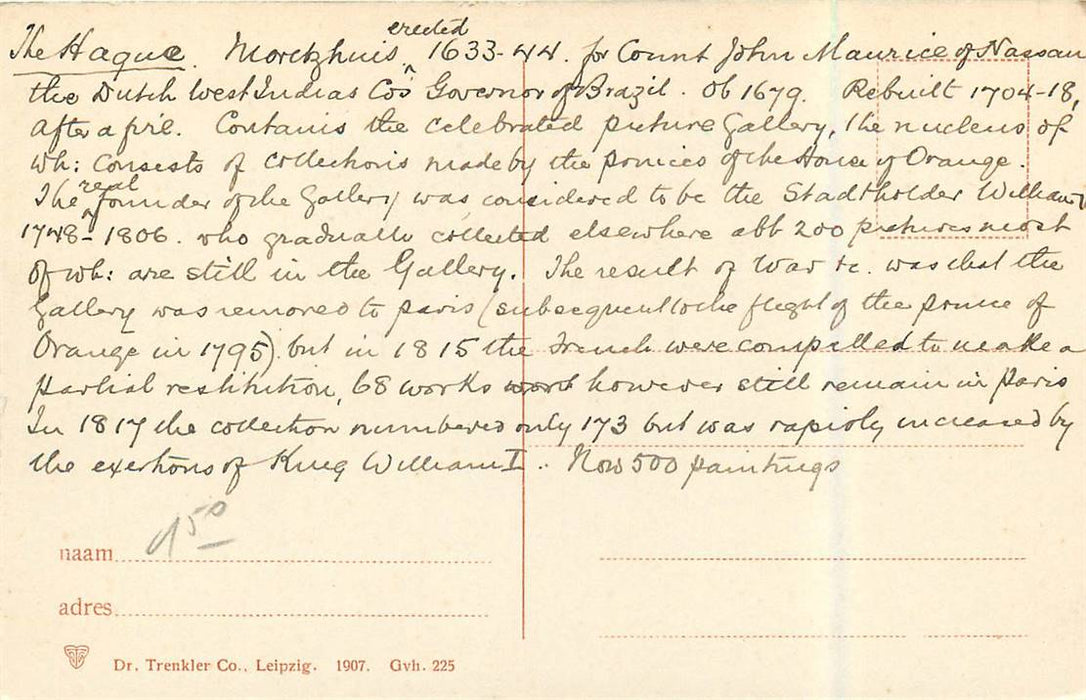 The Hague. Moritzhuis, erected 1633-44. for Count John Maurice of Nassau
the Dutch West Indias Co's Governor of Brazil. Ob 1679. Rebuilt 1704-18,
after a fire. Contains the celebrated picture Gallery, the nucleus of
wh: consists of collections made by the princes of the House of Orange.
The real founder of the Gallery was considered to be the Stadtholder William V
1748-1806. who gradually collected elsewhere abt 200 pictures most
of wh: are still in the Gallery. The result of War &c. was that the
Gallery was removed to paris (subsequent to the flight of the prince of
Orange in 1795). but in 1815 the French were compelled to make a
partial restitution, 68 works however still remain in Paris
In 1817 the collection numbered only 173 but was rapidly increased by
the exertions of King William I.. Now 500 paintings
naam
adres
Dr. Trenkler Co., Leipzig. 1907. Gvh. 225